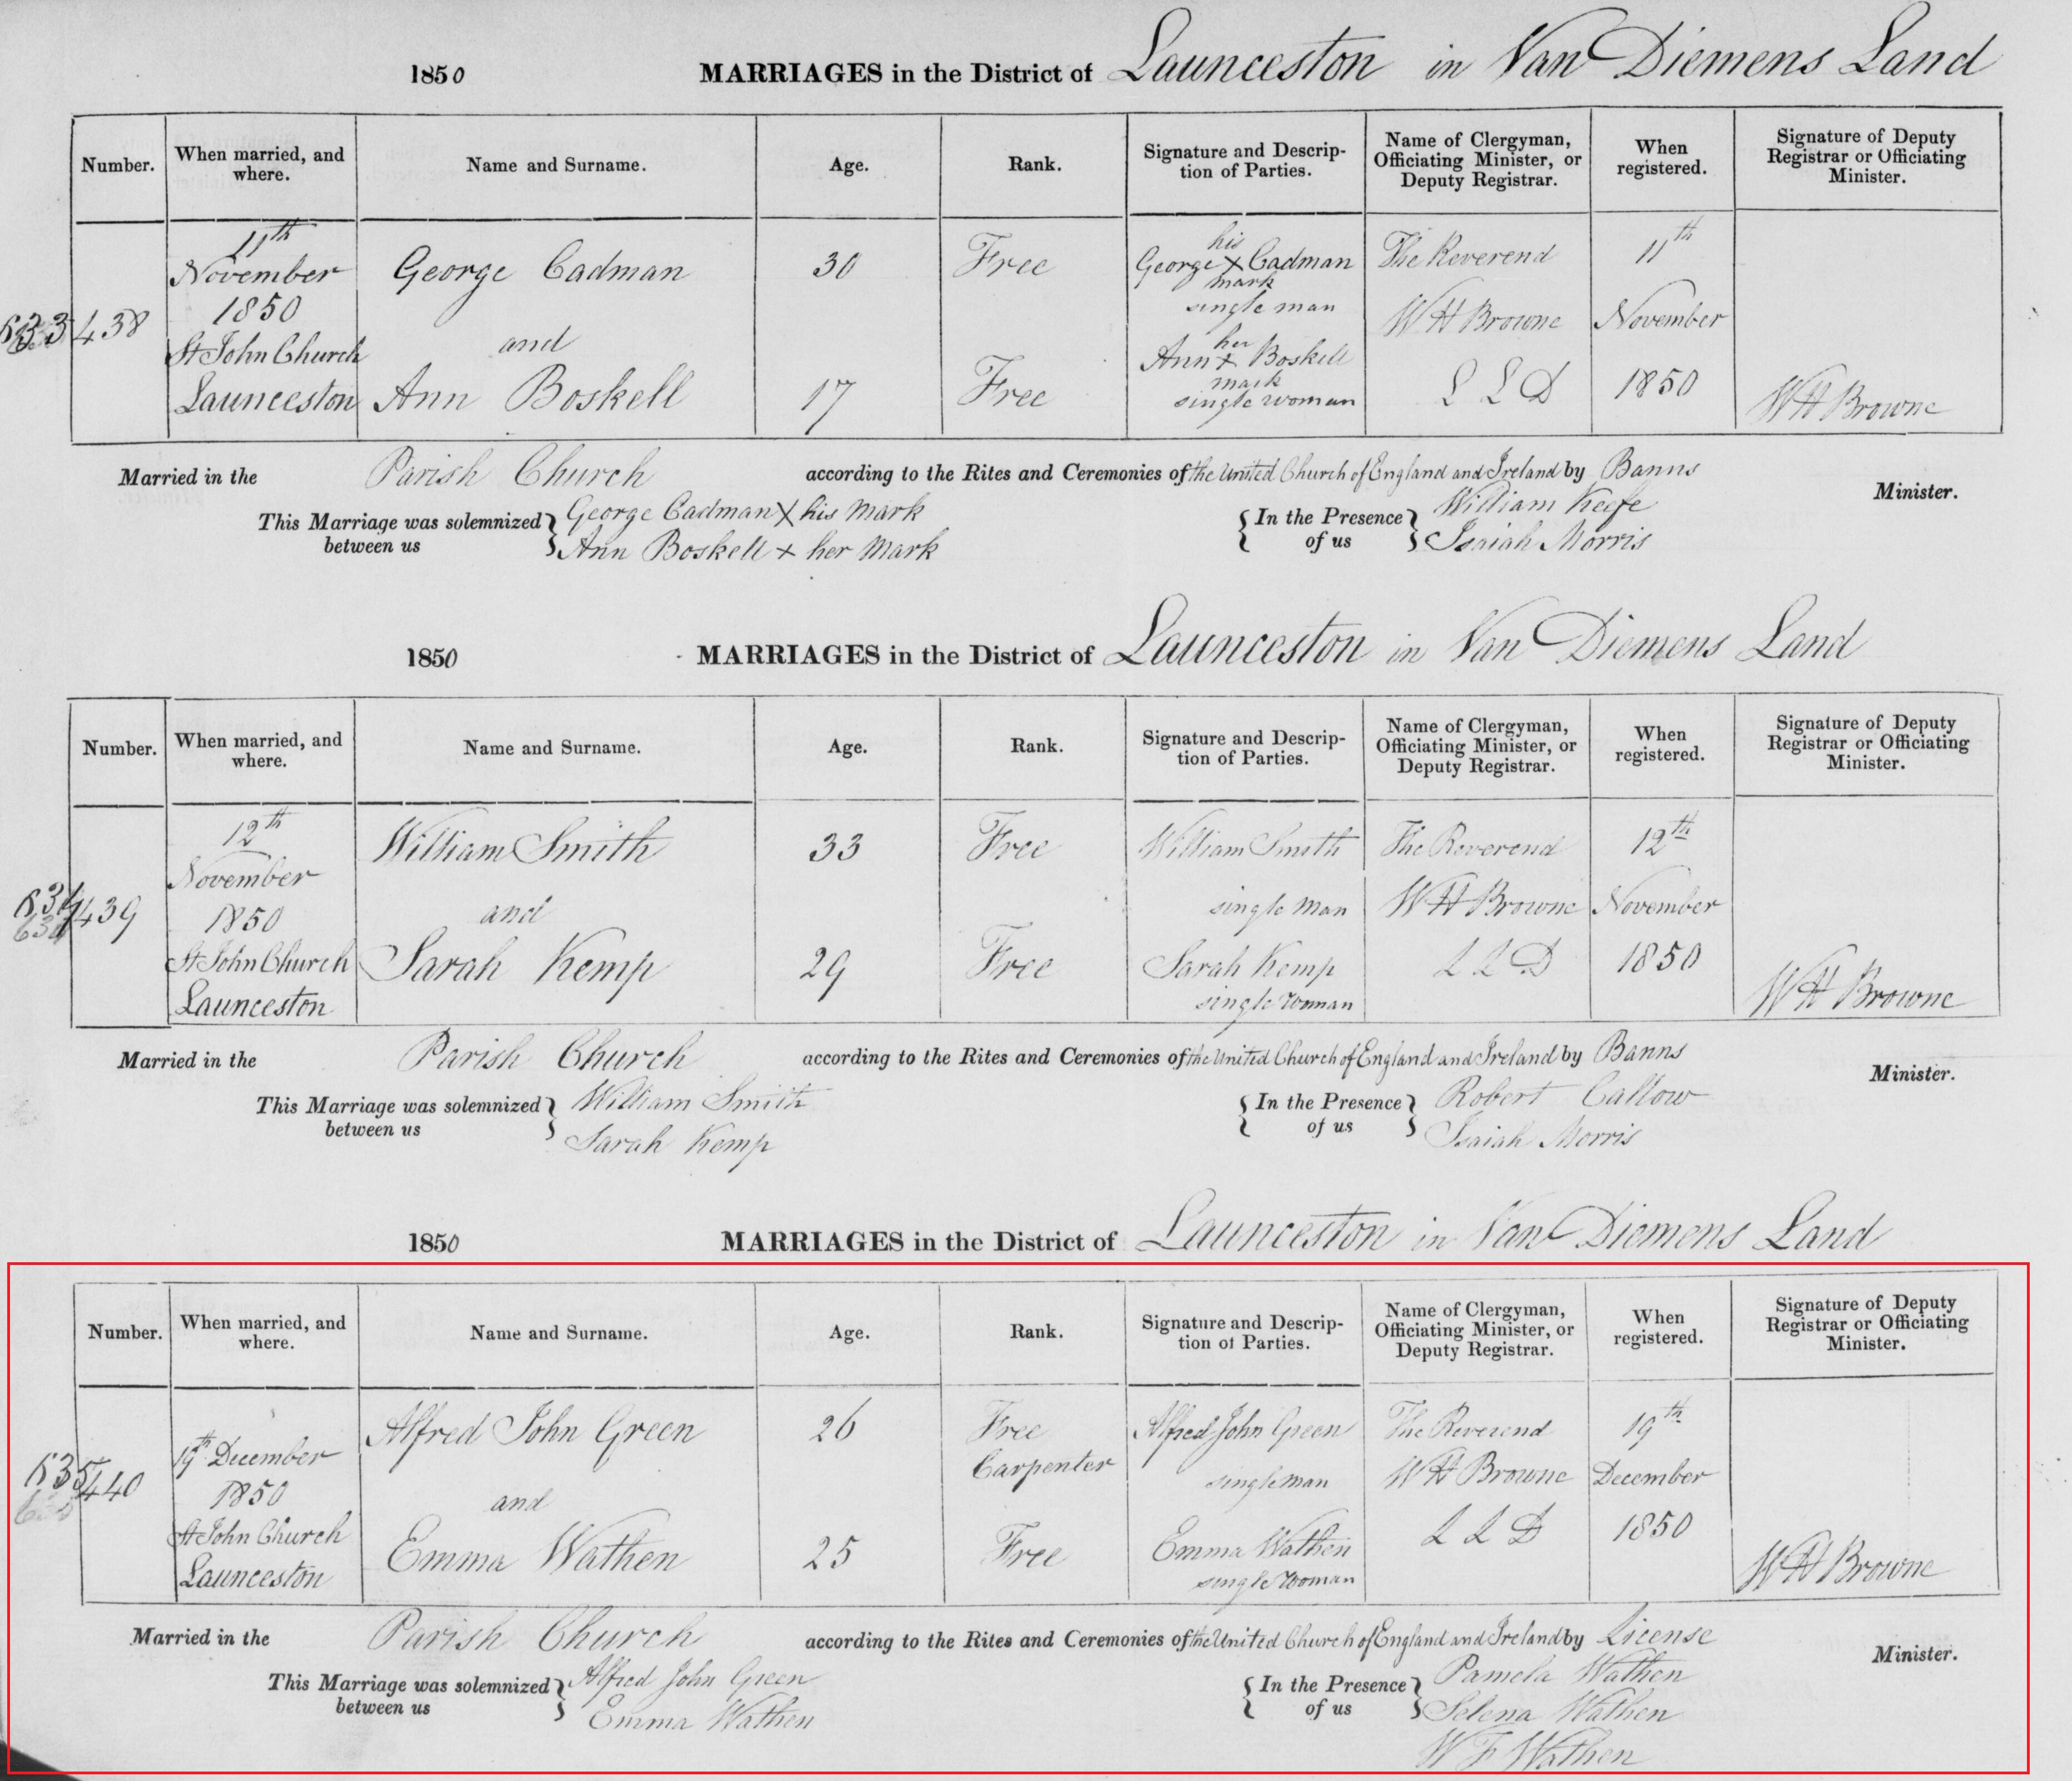 1850 MARRIAGES in the District of Launceston in Van Diemens Land
Number. When married, and where. Name and Surname. Age. Rank. Signature and Description of Parties. Name of Clergyman, Officiating Minister, or Deputy Registrar. When registered. Signature of Deputy Registrar or Officiating Minister.
11th November 1850 St John Church Launceston
633/438
George Cadman 30 Free
and
Ann Boskell 17 Free
his
George X Cadman
mark
single man
her
Ann + Boskell
mark
single woman
The Reverend
W H Browne
L L D
11th
November
1850
W H Browne
Married in the Parish Church according to the Rites and Ceremonies of the United Church of England and Ireland by Banns
Minister.
This Marriage was solemnized between us
George Cadman X his Mark
Ann Boskell + her Mark
In the Presence of us
William Keefe
Isaiah Morris
1850 MARRIAGES in the District of Launceston in Van Diemens Land
Number. When married, and where. Name and Surname. Age. Rank. Signature and Description of Parties. Name of Clergyman, Officiating Minister, or Deputy Registrar. When registered. Signature of Deputy Registrar or Officiating Minister.
634/439
12th
November
1850
St John Church
Launceston
William Smith 33 Free
and
Sarah Kemp 29 Free
William Smith
single man
Sarah Kemp
single woman
The Reverend
W H Browne
L L D
12th
November
1850
W H Browne
Married in the Parish Church according to the Rites and Ceremonies of the United Church of England and Ireland by Banns
Minister.
This Marriage was solemnized between us
William Smith
Sarah Kemp
In the Presence of us
Robert Callow
Isaiah Morris
1850 MARRIAGES in the District of Launceston in Van Diemens Land
Number. When married, and where. Name and Surname. Age. Rank. Signature and Description of Parties. Name of Clergyman, Officiating Minister, or Deputy Registrar. When registered. Signature of Deputy Registrar or Officiating Minister.
635/440
19th December
1850
St John Church
Launceston
Alfred John Green 26 Free
Carpenter
and
Emma Wathen 25 Free
Alfred John Green
single man
Emma Wathen
single woman
The Reverend
W H Browne
L L D
19th
December
1850
W H Browne
Married in the Parish Church according to the Rites and Ceremonies of the United Church of England and Ireland by License
Minister.
This Marriage was solemnized between us
Alfred John Green
Emma Wathen
In the Presence of us
Pamela Wathen
Selena Wathen
W F Wathen